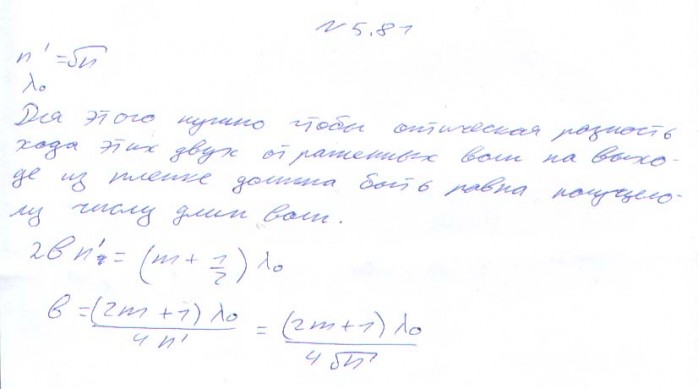 N 5.81
n' = √n
λ₀
Для этого нужно чтобы оптическая разность
хода этих двух отраженных волн на выхо-
де из пленке должна быть равна полуцело-
му числу длин волн.
2b n' = (m + 1/2) λ₀
b = (2m + 1) λ₀ / 4 n' = (2m + 1) λ₀ / 4 √n